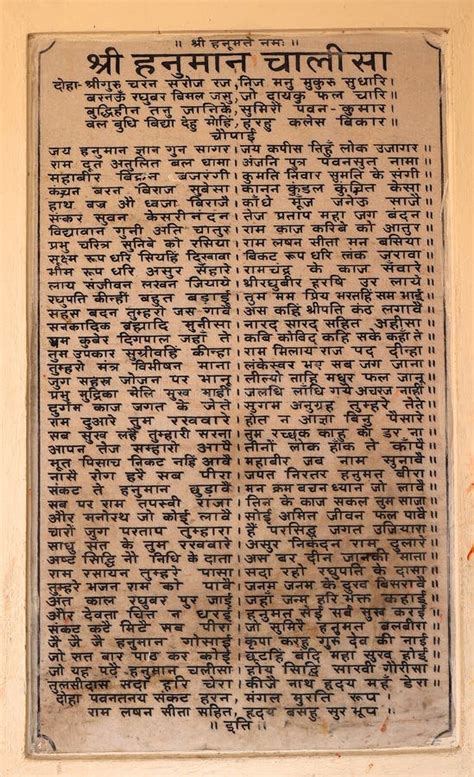 ॥ श्री हनुमते नमः ॥
श्री हनुमान चालीसा
दोहा- श्रीगुरु चरन सरोज रज, निज मनु मुकुरु सुधारि।
बरनऊँ रघुबर बिमल जसु, जो दायकु फल चारि।
बुद्धिहीन तनु जानिके, सुमिरौं पवन-कुमार
बल बुधि विद्या देहु मोहिं, हरहु कलेस बिकार॥
चौपाई
जय हनुमान ज्ञान गुन सागर। जय कपीस तिहुँ लोक उजागर॥
राम दूत अतुलित बल धामा। अंजनि पुत्र पवनसुत नामा॥
महाबीर बिक्रम बजरंगी। कुमति निवार सुमति के संगी॥
कंचन बरन बिराज सुबेसा। कानन कुंडल कुंचित केसा॥
हाथ बज्र औ ध्वजा बिराजै। काँधे मूँज जनेऊ साजै॥
संकर सुवन केसरीनंदन। तेज प्रताप महा जग बंदन॥
विद्यावान गुनी अति चातुर। राम काज करिबे को आतुर॥
प्रभु चरित्र सुनिबे को रसिया। राम लषन सीता मन बसिया॥
सूक्ष्म रूप धरि सियहिं दिखावा। बिकट रूप धरि लंक जरावा॥
भीम रूप धरि असुर सँहारे। रामचन्द्र के काज सँवारे॥
लाय संजीवन लखन जियाये। श्रीरघुबीर हरषि उर लाये॥
रघुपति कीन्हीं बहुत बड़ाई। तुम मम प्रिय भरतहिं सम भाई॥
सहस बदन तुम्हरो जस गावैं। अस कहिं श्रीपति कंठ लगावैं॥
सनकादिक ब्रह्मादि मुनीसा। नारद सारद सहित अहीसा॥
जम कुबेर दिगपाल जहाँ ते। कबि कोविद कहि सके कहाँ ते॥
तुम उपकार सुग्रीवहिं कीन्हा। राम मिलाय राज पद दीन्हा॥
तुम्हरो मंत्र विभीषन माना। लंकेस्वर भए सब जग जाना॥
जुग सहस्र जोजन पर भानू। लील्यो ताहि मधुर फल जानू॥
प्रभु मुद्रिका मेलि मुख माहीं। जलधि लाँघि गये अचरज नाहीं॥
दुर्गम काज जगत के जेते। सुगम अनुग्रह तुम्हरे तेते॥
राम दुआरे तुम रखवारे। होत न आज्ञा बिनु पैसारे॥
सब सुख लहैं तुम्हारी सरना। तुम रच्छक काहू को डर ना॥
आपन तेज सम्हारो आपै। तीनों लोक हाँक ते काँपै॥
भूत पिसाच निकट नहिं आवै। महाबीर जब नाम सुनावै॥
नासै रोग हरे सब पीरा। जपत निरंतर हनुमत बीरा॥
संकट ते हनुमान छुड़ावै। मन क्रम बचन ध्यान जो लावै॥
सब पर राम तपस्वी राजा। तिन के काज सकल तुम साजा॥
और मनोरथ जो कोई लावै। सोई अमित जीवन फल पावै॥
चारों जुग परताप तुम्हारा। है परसिद्ध जगत उजियारा॥
साधु संत के तुम रखवारे। असुर निकंदन राम दुलारे॥
अष्ट सिद्धि नौ निधि के दाता। अस बर दीन जानकी माता॥
राम रसायन तुम्हरे पासा। सदा रहो रघुपति के दासा॥
तुम्हरे भजन राम को पावै। जनम जनम के दुख बिसरावै॥
अंत काल रघुबर पुर जाई। जहाँ जन्म हरि भक्त कहाई॥
और देवता चित्त न धरई। हनुमत सेई सर्ब सुख करई॥
संकट कटै मिटै सब पीरा। जो सुमिरै हनुमत बलबीरा॥
जै जै जै हनुमान गोसाईं। कृपा करहु गुरु देव की नाईं॥
जो सत बार पाठ कर कोई। छूटहि बंदि महा सुख होई॥
जो यह पढ़ै हनुमान चलीसा। होय सिद्धि साखी गौरीसा॥
तुलसीदास सदा हरि चेरा। कीजै नाथ हृदय महँ डेरा॥
दोहा पवनतनय संकट हरन, मंगल मुरति रूप।
राम लषन सीता सहित, हृदय बसहु सुर भूप॥
॥ इति ॥